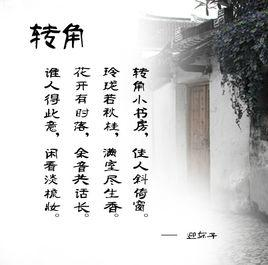 转角
转角小书房，佳人斜倚窗。
玲珑若秋桂，满室尽生香。
花开有时落，余音共话长。
谁人得此意，闲看淡梳妆。